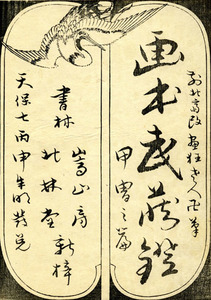 前北斎改画狂老人卍筆
画本武蔵鐙
甲冑之篇
書林
嵩山房
北林堂 新梓
天保七丙申朱明